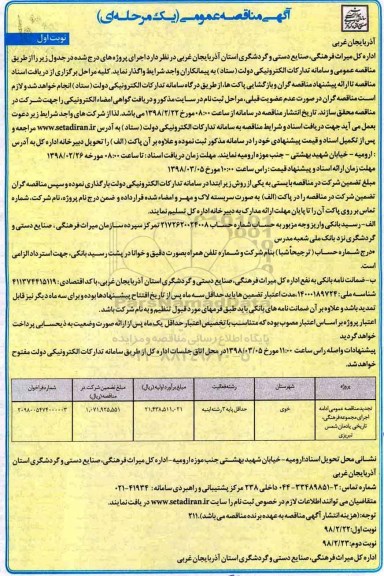 آگهی مناقصه عمومی (یک مرحله‌ای)
نوبت اول
آذربایجان غربی
اداره کل میراث فرهنگی، صنایع دستی و گردشگری استان آذربایجان غربی در نظر دارد اجرای پروژه های درج شده در جدول زیر را از طریق
مناقصه عمومی و سامانه تدارکات الکترونیکی دولت (ستاد) به پیمانکاران واجد شرایط واگذار نماید. کلیه مراحل برگزاری از دریافت اسناد
مناقصه تا ارائه پیشنهاد مناقصه گران و بازگشایی پاکت ها، از طریق درگاه سامانه تدارکات الکترونیکی دولت (ستاد) انجام خواهد شد و لازم
است مناقصه گران در صورت عدم عضویت قبلی، مراحل ثبت نام در سایت مذکور و دریافت گواهی امضاء الکترونیکی را جهت شرکت در
مناقصه محقق سازند. تاریخ انتشار مناقصه در سامانه از ساعت ۰۸:۰۰ مورخ ۱۳۹۸/۰۲/۲۲ می باشد. لذا از شرکت های واجد شرایط زیر دعوت
بعمل می آید جهت دریافت اسناد و شرایط مناقصه به سامانه تدارکات الکترونیکی دولت (ستاد) به آدرس www.setadiran.ir مراجعه و
پس از تکمیل اسناد و قیمت پیشنهادی خود را در سامانه مذکور ثبت نموده و علاوه بر آن پاکت (الف) را تحویل دبیرخانه اداره کل به آدرس
: ارومیه - خیابان شهید بهشتی - جنب موزه ارومیه نمایند. مهلت زمان دریافت اسناد: تا ساعت ۰۸:۰۰ مورخه ۱۳۹۸/۰۲/۲۶
مهلت زمان ارائه اسناد و پیشنهاد قیمت: راس ساعت ۱۰:۰۰ مورخ ۱۳۹۸/۰۳/۰۵
مبلغ تضمین شرکت در مناقصه بایستی به یکی از روش زیر ابتدا در سامانه تدارکات الکترونیکی دولت بارگذاری نموده و سپس مناقصه گران
تضمین شرکت در مناقصه را در پاکت (الف) به صورت سربسته لاک و مهر و امضاء شده قرارداده و ضمن درج نام پروژه، نام شرکت، شماره
تماس بر روی پاکت آن را تا پایان مهلت ارائه مدارک به دبیرخانه اداره کل تسلیم نمایند.
الف - رسید بانکی واریز وجه مزبور به حساب شماره حساب ۲۱۷۲۶۲۰۲۴۰۰۸ تمرکز سپرده سازمان میراث فرهنگی، صنایع دستی و
گردشگری نزد بانک ملی شعبه مدرس
«درج شماره حساب (ترجیحاً شبا) بنام شرکت و شماره تلفن همراه بصورت دقیق و خوانا در پشت رسید بانکی، جهت استرداد الزامی
است.
ب- ضمانت نامه بانکی به نفع اداره کل میراث فرهنگی، صنایع دستی و گردشگری استان آذربایجان غربی، با کد اقتصادی: ۴۱۱۳۷۴۴۱۵۱۱۹
شناسه ملی: ۱۴۰۰۰۱۸۹۷۲۴. مدت اعتبار تضمین ها باید حداقل سه ماه پس از تاریخ افتتاح پیشنهادها بوده و برای سه ماه دیگر نیز قابل
تمدید باشد و علاوه بر آن ضمانت نامه های بانکی باید طبق فرمهای مورد قبول تنظیم و به نام شرکت باشد.
اعتبار پروژه بر اساس اعتبار مصوب بوده که متناسب با تخصیص اعتبار حداقل یک ماه پس از ارائه صورت وضعیت به ذیحسابی پرداخت
خواهد گردید
پیشنهادات واصله راس ساعت ۱۱:۰۰ مورخ ۱۳۹۸/۰۳/۰۵ در محل اتاق جلسات اداره کل از طریق سامانه تدارکات الکترونیکی دولت مفتوح
خواهد شد.
پروژه شهرستان رشته فعالیت مبلغ برآورد اولیه (ریال) مبلغ تضمین شرکت در مناقصه (ریال) شماره فراخوان
تجدید مناقصه عمومی ادامه اجرای مجموعه فرهنگی، تاریخی یادمان شمس تبریزی خوی حداقل پایه ۴ رشته ابنیه ۲۱,۴۳۸,۵۱۱,۰۲۱ ۱,۰۷۱,۹۲۵,۵۵۱ ۲۰۹۸۰۰۵۴۷۴۰۰۰۰۰۳
نشانی محل تحویل اسناد: ارومیه - خیابان شهید بهشتی جنب موزه ارومیه - اداره کل میراث فرهنگی، صنایع دستی و گردشگری استان
آذربایجان غربی
شماره تماس: ۳-۳۳۴۸۹۸۵۱-۰۴۴ داخلی ۲۳۸ مرکز پشتیبانی و راهبردی سامانه: ۴۱۹۳۴-۰۲۱
متقاضیان می توانند اطلاعات لازم در خصوص ثبت نام را سایت www.setadiran.ir دریافت نمایند.
توجه: (هزینه انتشار آگهی مناقصه به عهده برنده مناقصه می باشد). ۲۱۱
نوبت اول: ۹۸/۲/۲۲
نوبت دوم: ۹۸/۲/۲۳
اداره کل میراث فرهنگی، صنایع دستی و گردشگری استان آذربایجان غربی